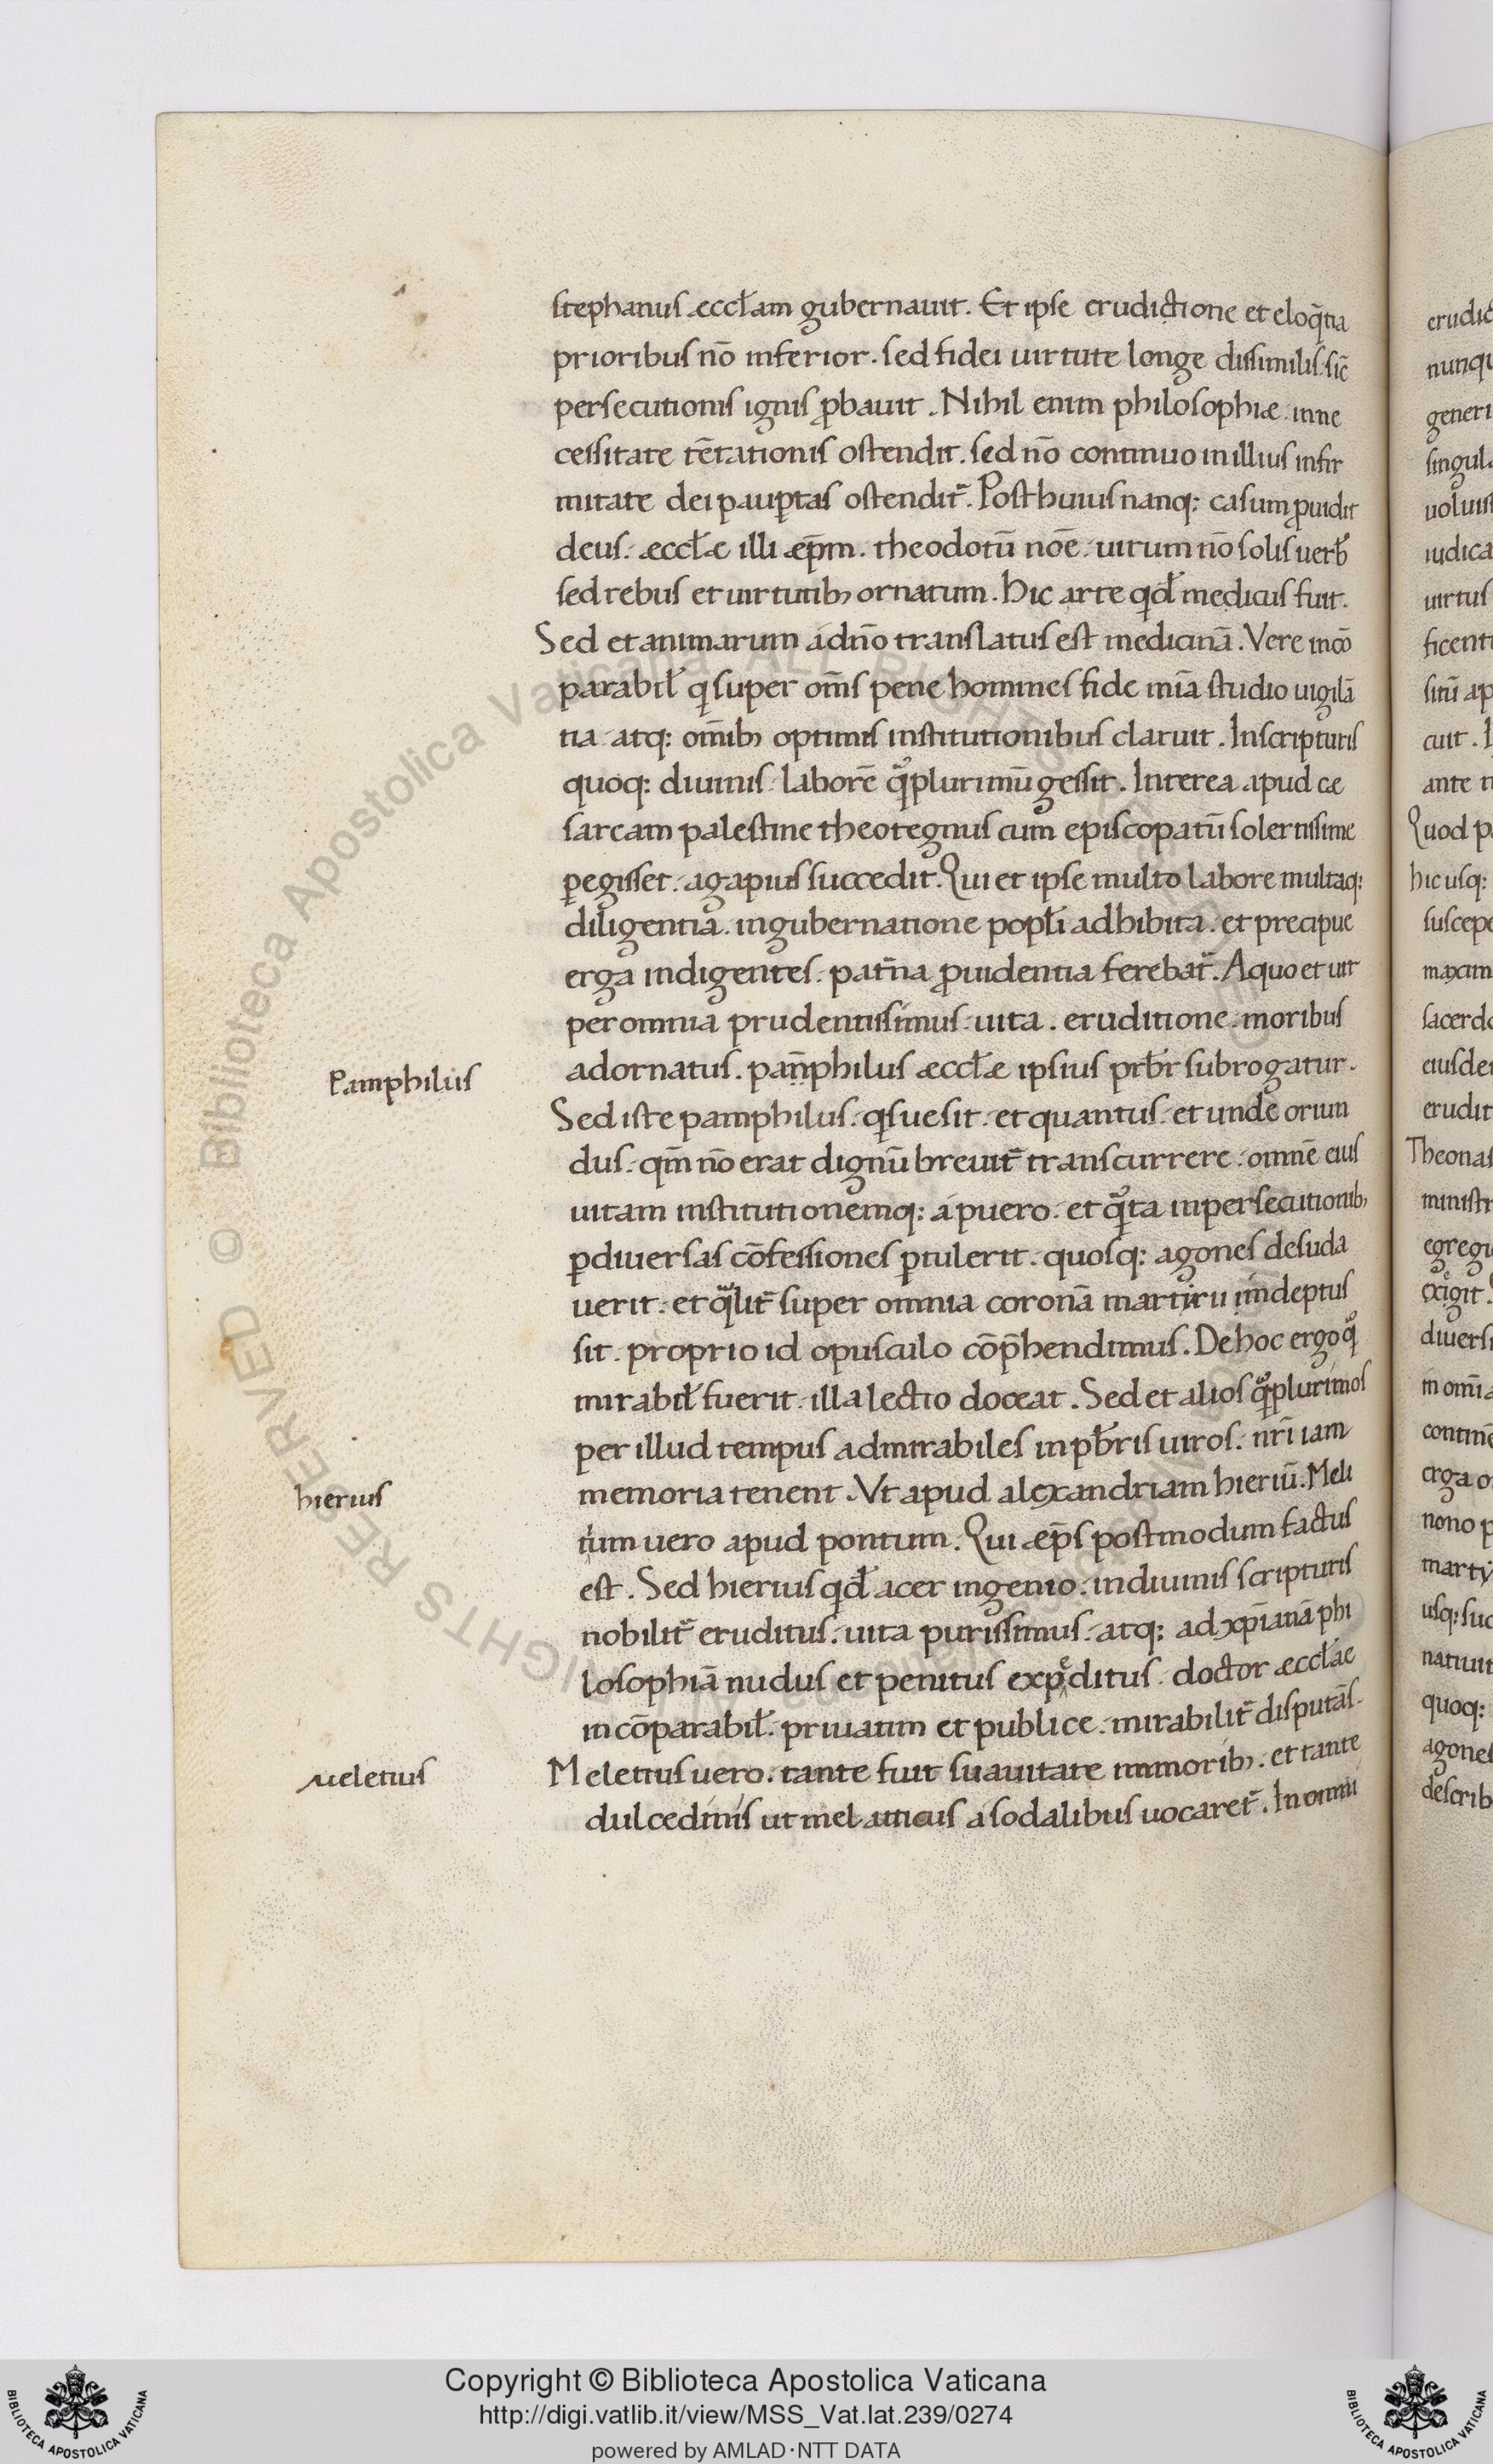 stephanus æccl̄am gubernauit. Et ipse erudictione et eloq̄tia
prioribus nō inferior. sed fidei uirtute longe dissimilis. sic̄
persecutionis ignis ꝓbauit. Nihil enim philosophiæ inne
cessitate tētationis ostendit. sed nō continuo in illius infir
mitate dei pauꝑtas ostendit᷑. Post huius nanq: casum ꝓuidit
deus. æccl̄æ illi æp̄m. theodotū noē. uirum nō solis uerb̄
sed rebus et uirtutib; ornatum. Hic arte qd̄ medicus fuit.
Sed et animarum a dn̄o translatus est medicinā. Vere incō
parabil̄ q super om̄s pene homines fide mīa studio uigilā
tia atq: om̄ib; optimis institutionibus claruit. In scripturis
quoq: diuinis laborē qͦplurimū gessit. Interea apud cæ
saream palestine theotegnus cum episcopatū solertissime
ꝑegisset. agapius succedit. Qui et ipse multo labore multaq:
diligentia. in gubernatione popl̄i adhibita. et precipue
erga indigentes. pat̄na ꝓuidentia ferebat᷑. A quo et uir
per omnia prudentissimus uita. eruditione. moribus
adornatus. pan̄philus æccl̄æ ipsius prb̄r subrogatur.
Pamphilus
Sed iste pamphilus. qsue sit. et quantus. et unde oriun
dus. qm̄ nō erat dignū breuit᷑ transcurrere. omnē eius
uitam institutionemq: a puero. et qͣta in persecutionib;
ꝑ diuersas cōfessiones ꝑtulerit. quosq: agones desuda
uerit. et qͣlit᷑ super omnia coronā martiru indeptus
sit. proprio id opusculo cōp̄hendimus. De hoc ergo qͣ
mirabil̄ fuerit. illa lectio doceat. Sed et alios qͣplurimos
per illud tempus admirabiles in pb̄ris uiros. nr̄i iam
memoria tenent. Vt apud alexandriam hieriū. Meli
hierius
tium uero apud pontum. Qui æp̄s postmodum factus
est. Sed hierius qd̄ acer ingenio. in diuinis scripturis
nobilit᷑ eruditus. uita purissimus. atq: ad xp̄ianā phi
losophiā nudus et penitus expeditus. doctor æccl̄ae
incōparabil̄. priuatim et publice. mirabilit᷑ disputās.
Meletius uero. tante fuit suauitate in morib;. et tante
ueletius
dulcedinis ut mel atticus a sodalibus uocaret᷑. In omni
erudic
nunqu
generi
singula
uoluis
iudica
uirtus
ficenti
sitū ap
cuit. I
ante
Quod p
hic usq:
suscepe
maxim
sacerdo
eiusde
erudit
Theonas
ministr
egregi
exigit.
diuersi
in omīa
continē
erga o
nono p
marty
usq: suc
natiuit
quoq:
agones
describ
© Biblioteca Apostolica Vaticana ALL RIGHTS RESERVED
Copyright © Biblioteca Apostolica Vaticana
http://digi.vatlib.it/view/MSS_Vat.lat.239/0274
powered by AMLAD·NTT DATA
BIBLIOTECA APOSTOLICA VATICANA
BIBLIOTECA APOSTOLICA VATICANA